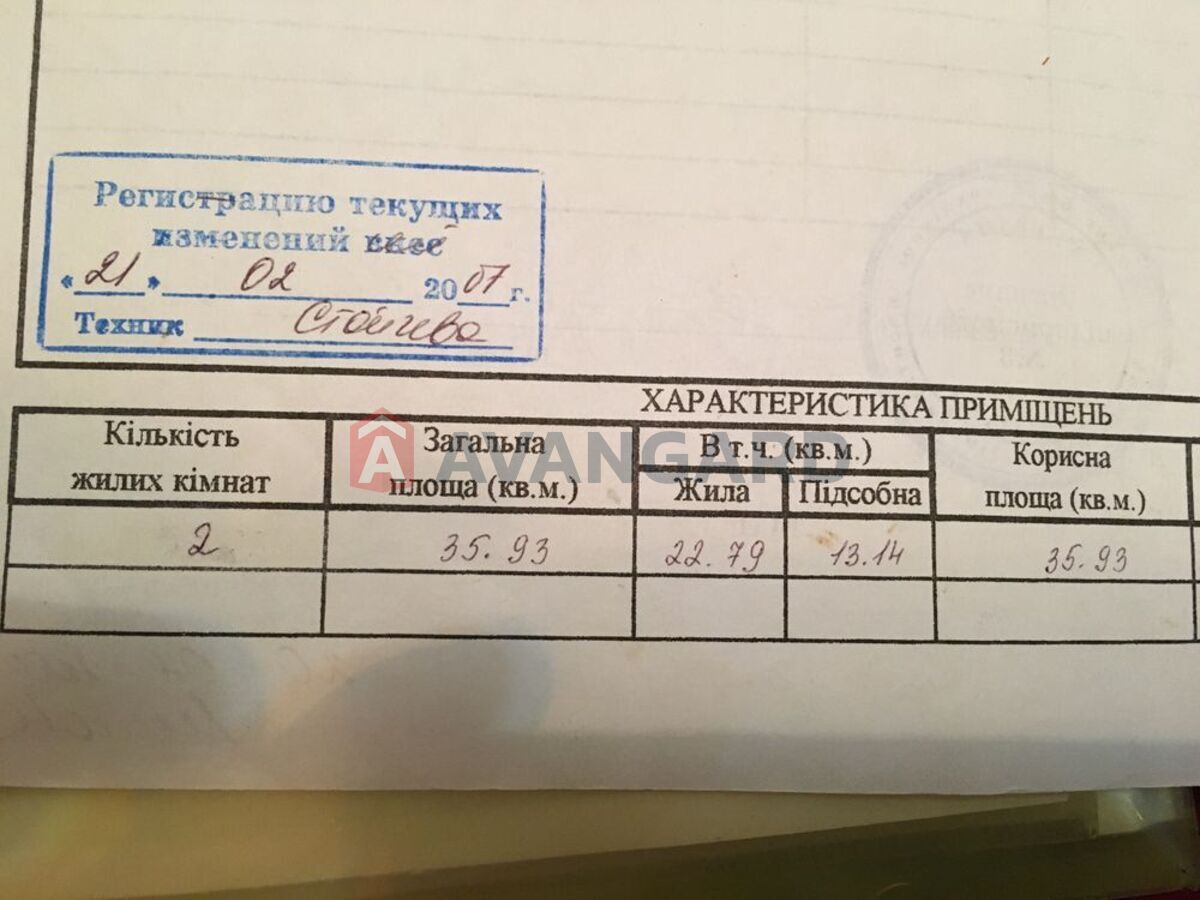 Регистрацию текущих
изменений внес
«21» 02 2007 г.
Техник Стойчева
ХАРАКТЕРИСТИКА ПРИМІЩЕНЬ
Кількість жилих кімнат
Загальна площа (кв.м.)
В т.ч. (кв.м.)
Жила
Підсобна
Корисна площа (кв.м.)
2
35.93
22.79
13.14
35.93
AVANGARD